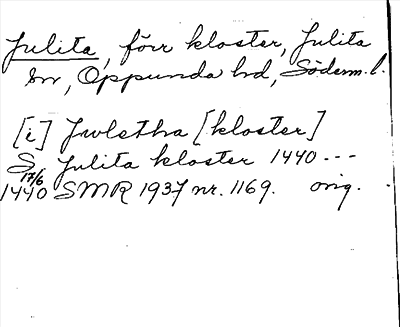 Julita, förr kloster, Julita
sn, Oppunda hd, Söderm. l.
[i] Juletha [kloster]
S Julita kloster 1440 ---
17/6
1440 SMR 1937 nr. 1169. orig.